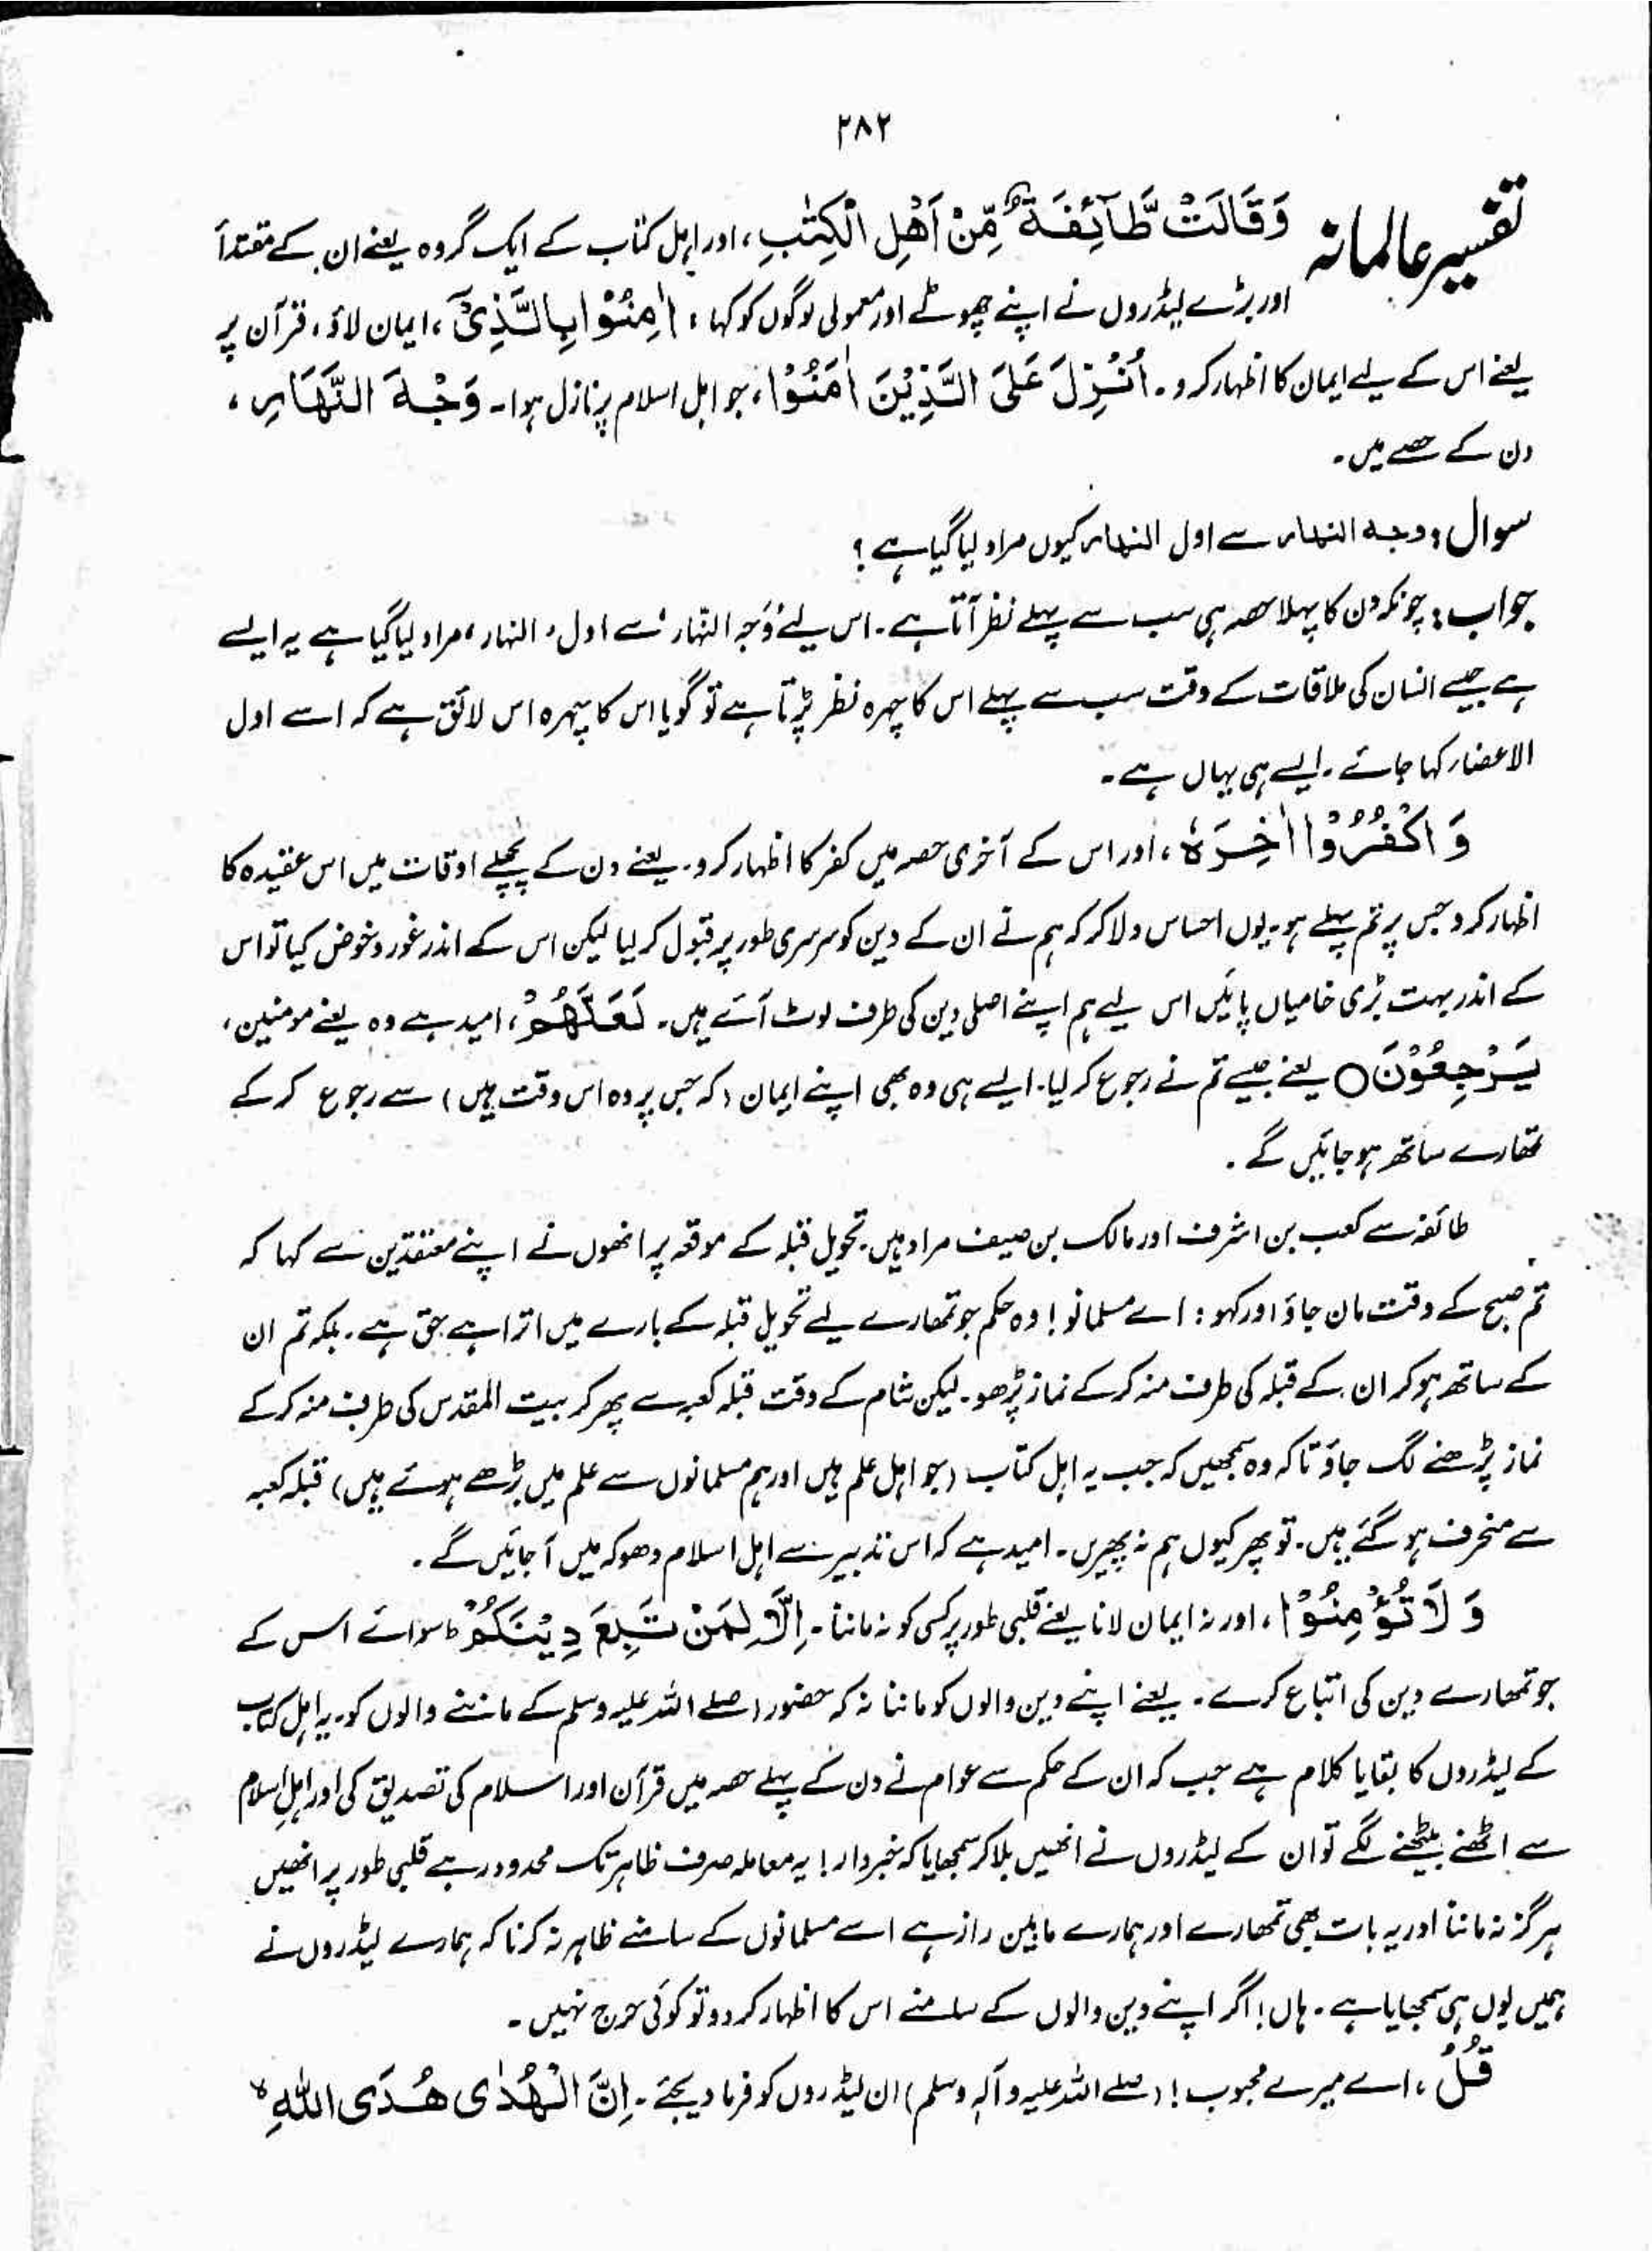 ۲۸۲
تفسیر عالمانہ وَقَالَتْ طَّآئِفَةٌ مِّنْ اَهْلِ الْكِتٰبِ، اور اہل کتاب کے ایک گروہ یعنے ان کے مقتدأ
اور بڑے لیڈروں نے اپنے چھوٹے اور معمولی لوگوں کو کہا، اٰمِنُوْا بِالَّذِیْٓ، ایمان لاؤ، قرآن پر
یعنے اس کے لیے ایمان کا اظہار کرو۔ اُنْزِلَ عَلَی الَّذِیْنَ اٰمَنُوْا، جو اہل اسلام پر نازل ہوا۔ وَجْهَ النَّهَارِ،
دن کے حصے میں۔
سوال: وجہ النہار سے اول النہار کیوں مراد لیا گیا ہے؟
جواب: چونکہ دن کا پہلا حصہ ہی سب سے پہلے نظر آتا ہے۔ اس لیے وَجہ النّہار، سے اول، النہار، مراد لیا گیا ہے یہ ایسے
ہے جیسے انسان کی ملاقات کے وقت سب سے پہلے اس کا چہرہ نظر پڑتا ہے تو گویا اس کا چہرہ اس لائق ہے کہ اسے اول
الاعضار کہا جائے۔ ایسے ہی یہاں ہے۔
وَاكْفُرُوْٓا اٰخِرَهٗ، اور اس کے آخری حصہ میں کفر کا اظہار کرو۔ یعنے دن کے پچھلے اوقات میں اس عقیدہ کا
اظہار کرو جس پر تم پہلے ہو۔ یوں احساس دلا کر کہ ہم نے ان کے دین کو سرسری طور پر قبول کر لیا لیکن اس کے اندر غور و خوض کیا تو اس
کے اندر بہت بڑی خامیاں پائیں اس لیے ہم اپنے اصلی دین کی طرف لوٹ آئے ہیں۔ لَعَلَّهُمْ، امید ہے وہ یعنے مومنین،
یَرْجِعُوْنَ○ یعنے جیسے تم نے رجوع کر لیا۔ ایسے ہی وہ بھی اپنے ایمان (کہ جس پر وہ اس وقت ہیں) سے رجوع کر کے
تمھارے ساتھ ہو جائیں گے۔
طائفہ سے کعب بن اشرف اور مالک بن صیف مراد ہیں۔ تحویل قبلہ کے موقعہ پر انھوں نے اپنے معتقدین سے کہا کہ
تم صبح کے وقت مان جاؤ اور کہو: اے مسلمانو! وہ حکم جو تمھارے لیے تحویل قبلہ کے بارے میں اترا ہے حق ہے۔ بلکہ تم ان
کے ساتھ ہو کر ان کے قبلہ کی طرف منہ کر کے نماز پڑھو۔ لیکن شام کے وقت قبلہ کعبہ سے پھر کر بیت المقدس کی طرف منہ کر کے
نماز پڑھنے لگ جاؤ تاکہ وہ سمجھیں کہ جب یہ اہل کتاب (جو اہل علم ہیں اور ہم مسلمانوں سے علم میں بڑھے ہوئے ہیں) قبلہ کعبہ
سے منحرف ہو گئے ہیں۔ تو پھر کیوں ہم نہ پھریں۔ امید ہے کہ اس تدبیر سے اہل اسلام دھوکہ میں آ جائیں گے۔
وَلَا تُؤْمِنُوْٓا، اور نہ ایمان لانا یعنے قلبی طور پر کسی کو نہ ماننا۔ اِلَّا لِمَنْ تَبِعَ دِیْنَكُمْ ؕ سوائے اس کے
جو تمھارے دین کی اتباع کرے۔ یعنے اپنے دین والوں کو ماننا نہ کہ حضور (صلے اللہ علیہ وسلم کے ماننے والوں کو۔ یہ اہل کتاب
کے لیڈروں کا بقایا کلام ہے جب کہ ان کے حکم سے عوام نے دن کے پہلے حصہ میں قرآن اور اسلام کی تصدیق کی اور اہلِ اسلام
سے اٹھنے بیٹھنے لگے تو ان کے لیڈروں نے انھیں بلا کر سمجھایا کہ خبردار! یہ معاملہ صرف ظاہر تک محدود رہے قلبی طور پر انھیں
ہرگز نہ ماننا اور یہ بات بھی تمھارے اور ہمارے مابین راز ہے اسے مسلمانوں کے سامنے ظاہر نہ کرنا کہ ہمارے لیڈروں نے
ہمیں یوں ہی سمجھایا ہے۔ ہاں! اگر اپنے دین والوں کے سامنے اس کا اظہار کر دو تو کوئی حرج نہیں۔
قُلْ، اے میرے محبوب! (صلے اللہ علیہ و آلہٖ وسلم) ان لیڈروں کو فرما دیجئے۔ اِنَّ الْهُدٰی هُدَی اللّٰهِ ۙ